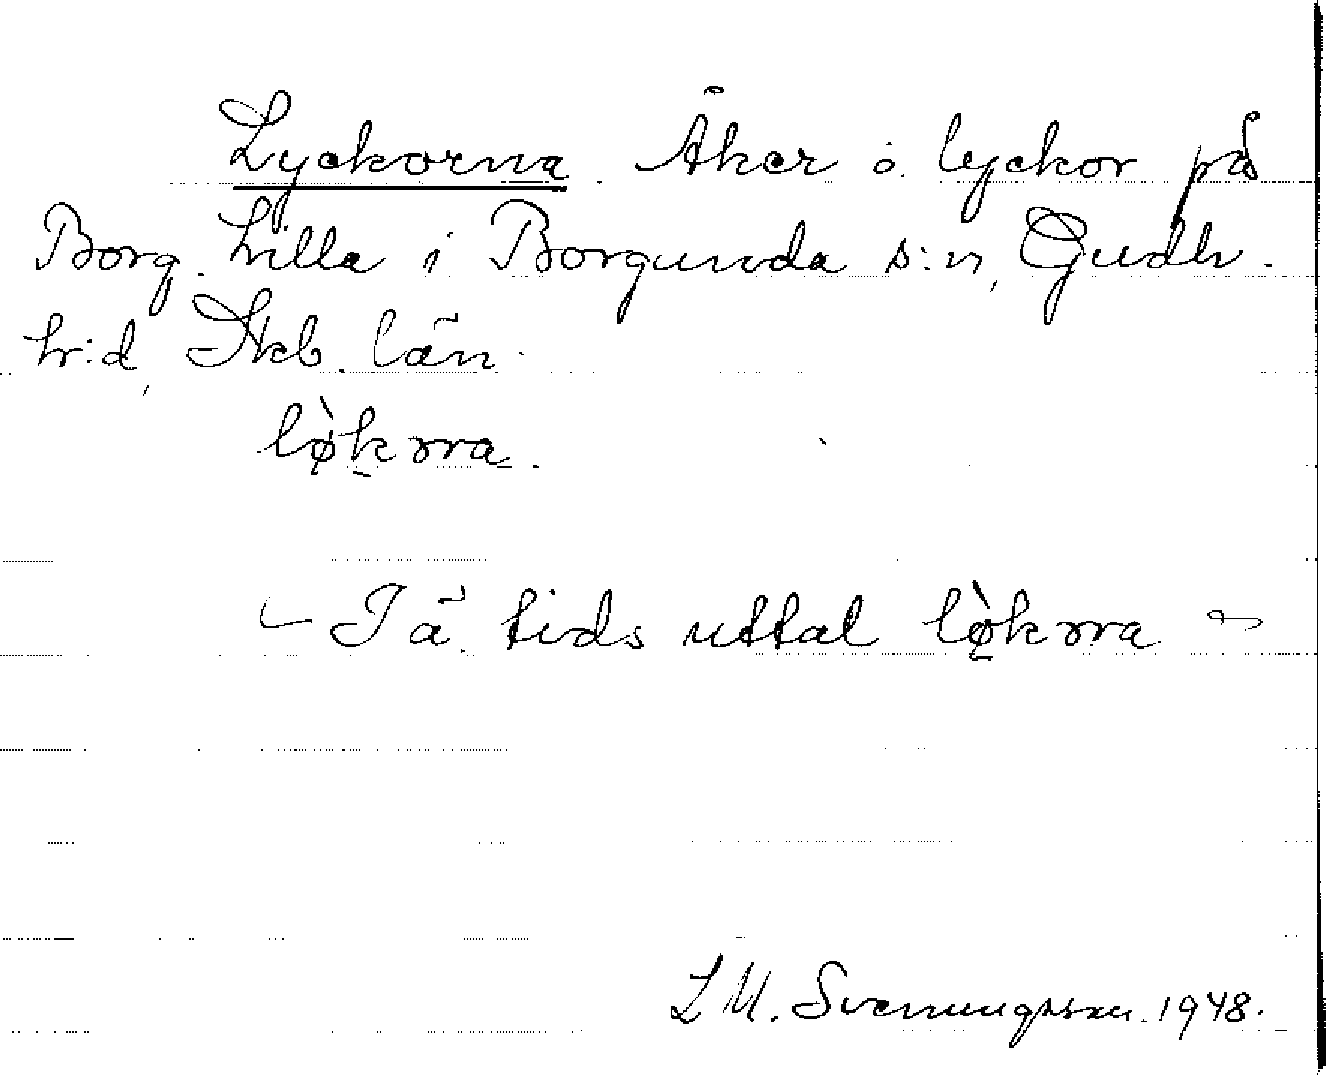 Lyckorna. Åker o. lyckor på
Borg. Lilla i Borgunda s:n, Gudh.
h:d, Skb. län.
lø̀kꭇꭇa.
– I ä. tids uttal lø̀kꭇꭇa –
L M. Svenungsson. 1948.